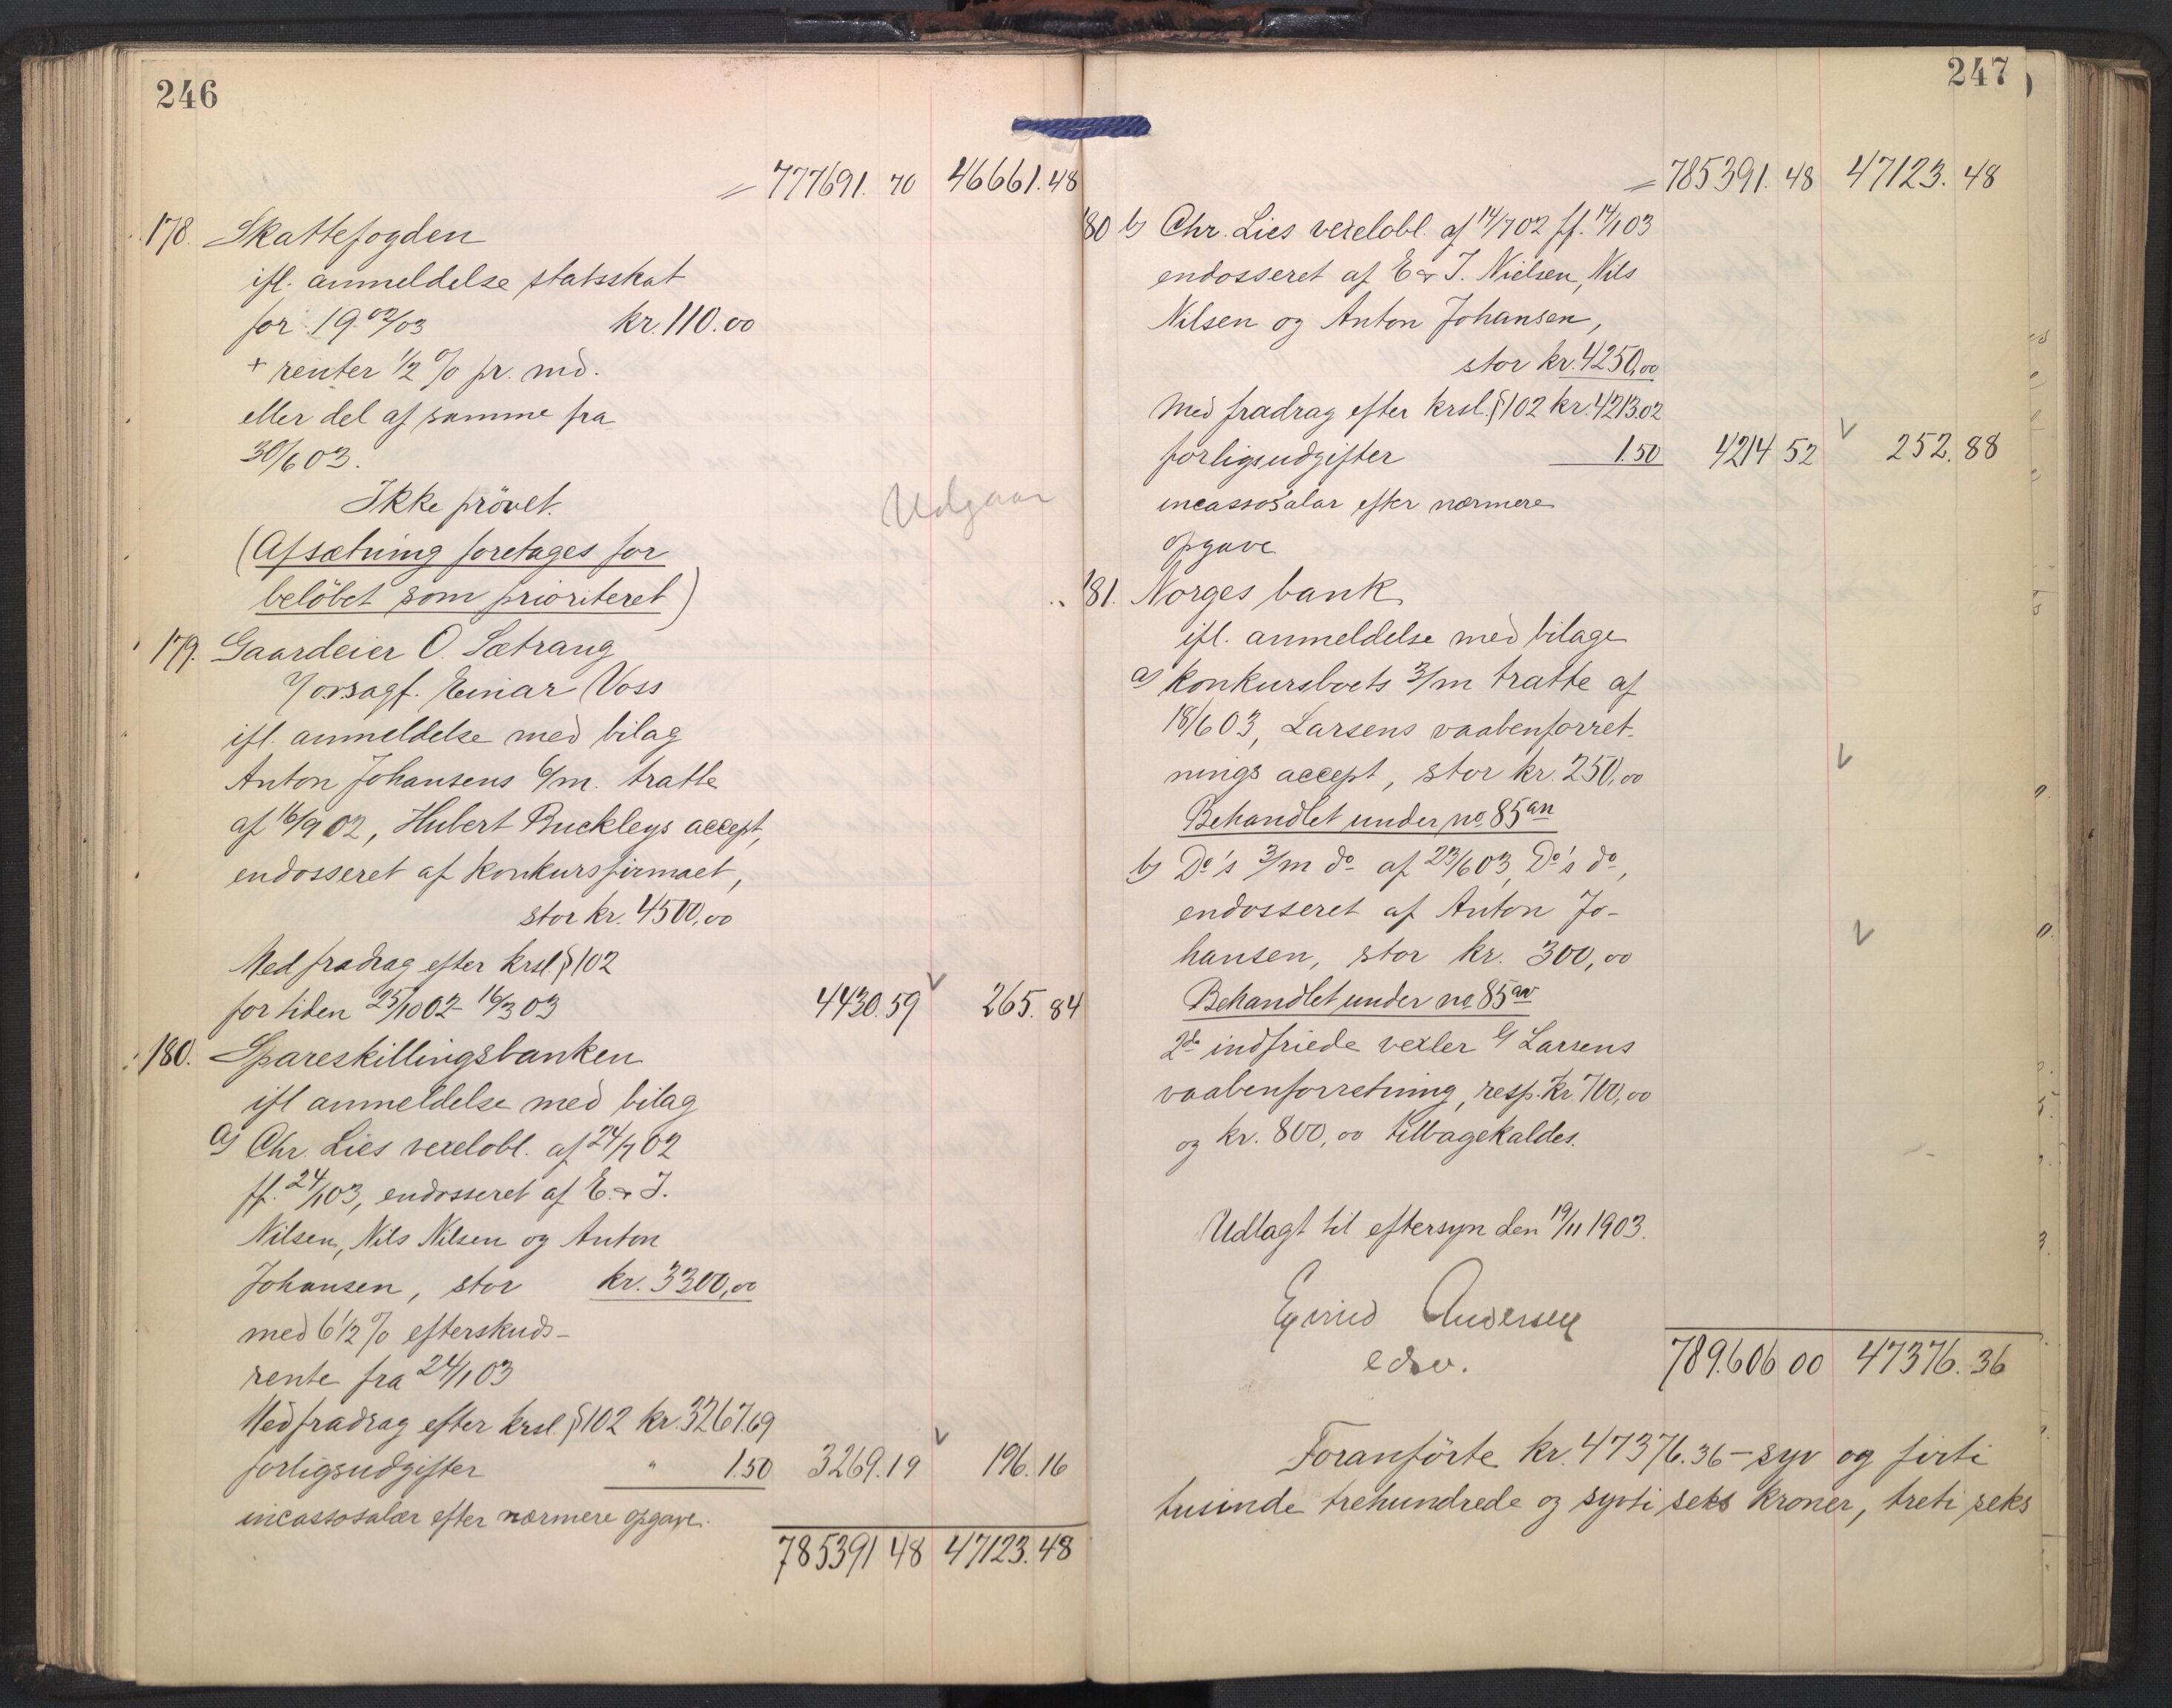 246
777691. 70 46661.48
178. Skattefogden
ifl. anmeldelse statsskat
for 19 02/03 kr. 110.00
+ renter 1/2 % pr. md.
eller del af samme fra
30/6 03.
Ikke prövet.
Udgaar
(Afsætning foretages for
belöbet som prioriteret)
179. Gaardeier O. Sætrang
v/ ovrsagf. Einar Voss
ifl. anmeldelse med bilag
Anton Johansens 6/m. tratte
af 16/9 02, Hubert Buckleys accept,
endosseret af konkursfirmaet,
stor kr. 4500,00
Med fradrag efter krsl. § 102
for tiden 25/10 02 - 16/3 03 4430.59 265.84
180. Spareskillingsbanken
ifl anmeldelse med bilag
a) Chr. Lies vexelobl. af 24/7 02
ff. 24/1 03, endosseret af E. & J.
Nilsen, Nils Nilsen og Anton
Johansen, stor kr. 3300,00
med 6 1/2 % efterskuds-
rente fra 24/1 03
Med fradrag efter krsl. § 102 kr. 3267.69
forligsudgifter " 1.50 3269.19 196.16
incassosalær efter nærmere opgave.
785391 48 47123.48
247
785391. 48 47123. 48
180 b) Chr. Lies vexelobl. af 14/7 02 ff. 14/1 03
endosseret af E & J. Nielsen, Nils
Nilsen og Anton Johansen,
stor kr. 4250,00
Med fradrag efter krsl. § 102 kr. 4213.02
forligsudgifter 1.50 4214 52 252.88
incassosalar efter nærmere
opgave
181. Norges bank
ifl. anmeldelse med bilage
a) Konkursboets 3/m tratte af
18/6 03, Larsens vaabenforret-
nings accept, stor kr. 250,00
Behandlet under no. 85 an
b) Do's 3/m do af 23/6 03, Do's do,
endosseret af Anton Jo-
hansen, stor kr. 300,00
Behandlet under no. 85 av
2de indfriede vexler a/ Larsens
vaabenforretning, resp. kr. 700,00
og kr. 800,00 tilbagekaldes.
Udlagt til eftersyn den 19/11 1903.
Eyvind Andersen
edsv. 789.606 00 47376.36
Foranförte kr. 47376.36 - syv og förti
tusinde trehundrede og sytti seks kroner, treti seks